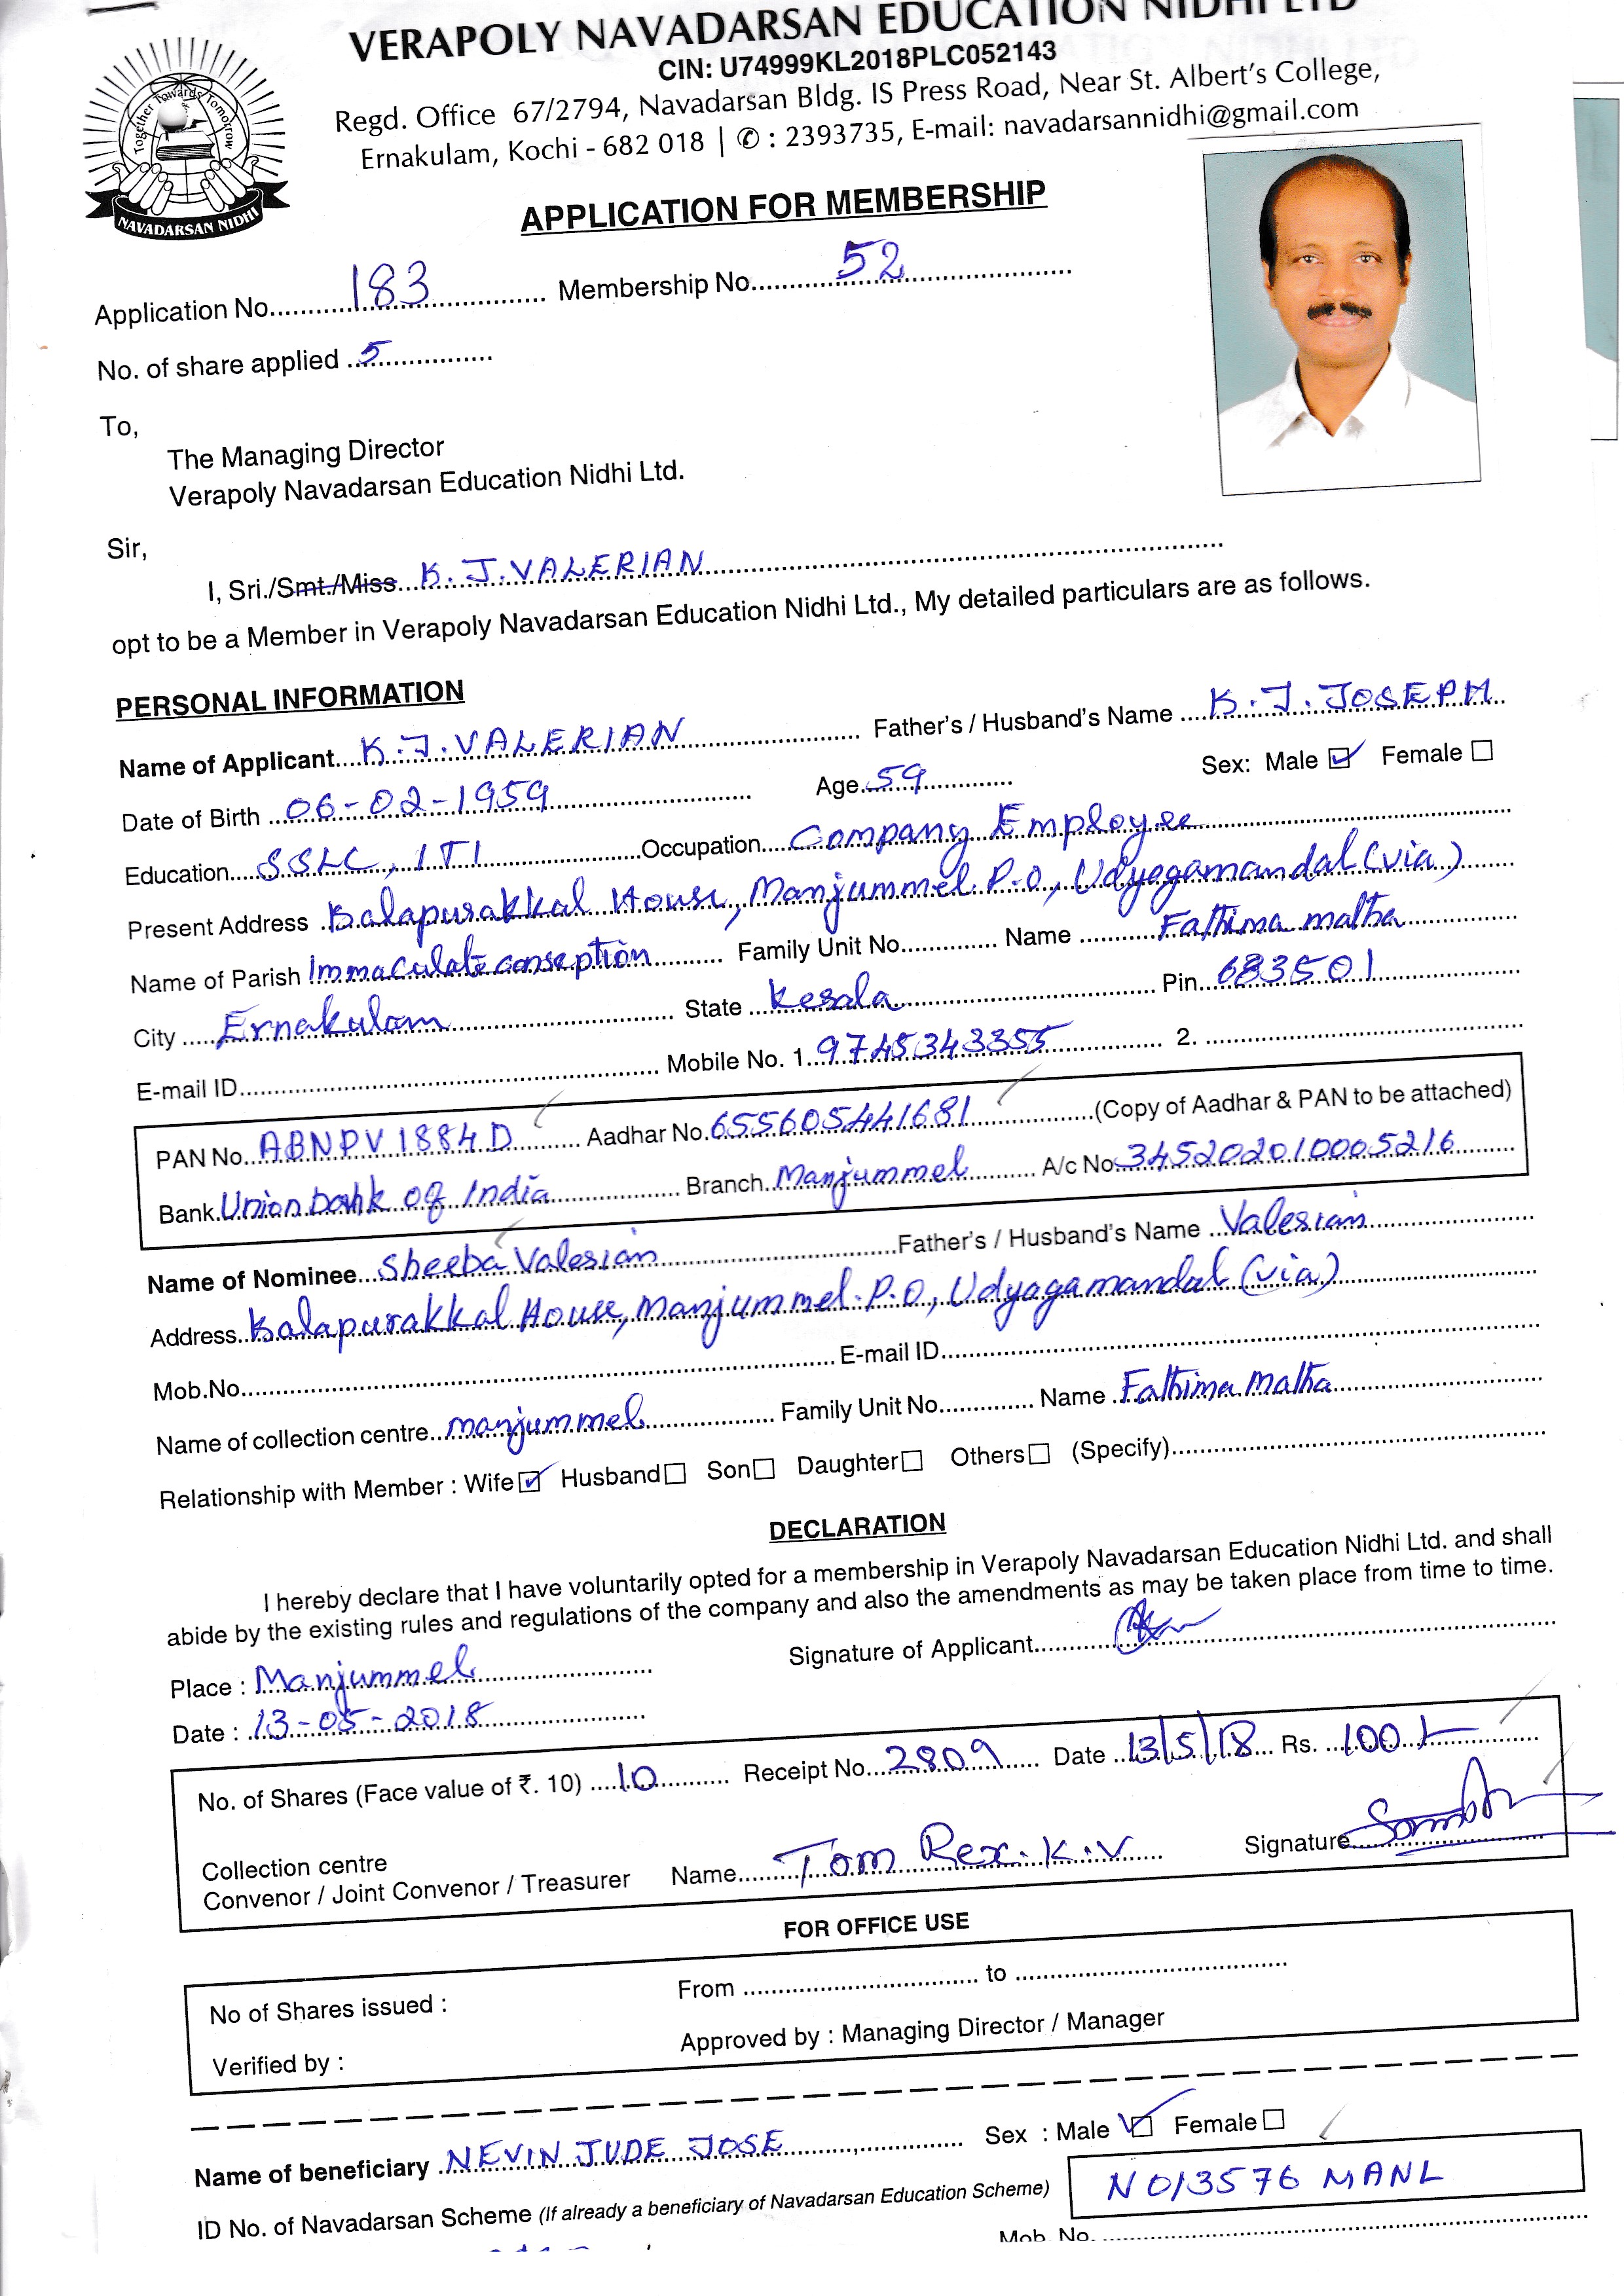 VERAPOLY NAVADARSAN EDUCATION NIDHI LTD
CIN: U74999KL2018PLC052143
Regd. Office 67/2794, Navadarsan Bldg. IS Press Road, Near St. Albert's College,
Ernakulam, Kochi - 682 018 | ✆ : 2393735, E-mail: navadarsannidhi@gmail.com
Together Towards Tomorrow
NAVADARSAN NIDHI
APPLICATION FOR MEMBERSHIP
Application No. 183 Membership No. 52
No. of share applied 5
To,
The Managing Director
Verapoly Navadarsan Education Nidhi Ltd.
Sir,
I, Sri./Smt./Miss K.J.VALERIAN
opt to be a Member in Verapoly Navadarsan Education Nidhi Ltd., My detailed particulars are as follows.
PERSONAL INFORMATION
Name of Applicant K.J.VALERIAN Father's / Husband's Name K.J.JOSEPH
Date of Birth 06-02-1959 Age 59 Sex: Male ☑ Female ☐
Education SSLC, ITI Occupation Company Employee
Present Address Kalapurakkal House, Manjummel P.O, Udyogamandal (via)
Name of Parish Immaculate conseption Family Unit No. Name Fathima matha
City Ernakulam State Kerala Pin 683501
E-mail ID Mobile No. 1. 9745343355 2.
PAN No. ABNPV1884D Aadhar No. 655605441681 (Copy of Aadhar & PAN to be attached)
Bank Union bank of India Branch Manjummel A/c No. 345202010005216
Name of Nominee Sheeba Valerian Father's / Husband's Name Valerian
Address Kalapurakkal House, Manjummel. P.O, Udyagamandal (via)
Mob.No. E-mail ID
Name of collection centre manjummel Family Unit No. Name Fathima Matha
Relationship with Member : Wife ☑ Husband ☐ Son ☐ Daughter ☐ Others ☐ (Specify)
DECLARATION
I hereby declare that I have voluntarily opted for a membership in Verapoly Navadarsan Education Nidhi Ltd. and shall
abide by the existing rules and regulations of the company and also the amendments as may be taken place from time to time.
Place : Manjummel Signature of Applicant
Date : 13-05-2018
No. of Shares (Face value of ₹. 10) 10 Receipt No. 2809 Date 13/5/18 Rs. 100/-
Collection centre
Convenor / Joint Convenor / Treasurer Name Tom Rex. K.V Signature
FOR OFFICE USE
No of Shares issued : From to
Verified by : Approved by : Managing Director / Manager
Name of beneficiary NEVIN JUDE JOSE Sex : Male ☑ Female ☐
ID No. of Navadarsan Scheme (If already a beneficiary of Navadarsan Education Scheme) N013576 MANL
Mob. No.